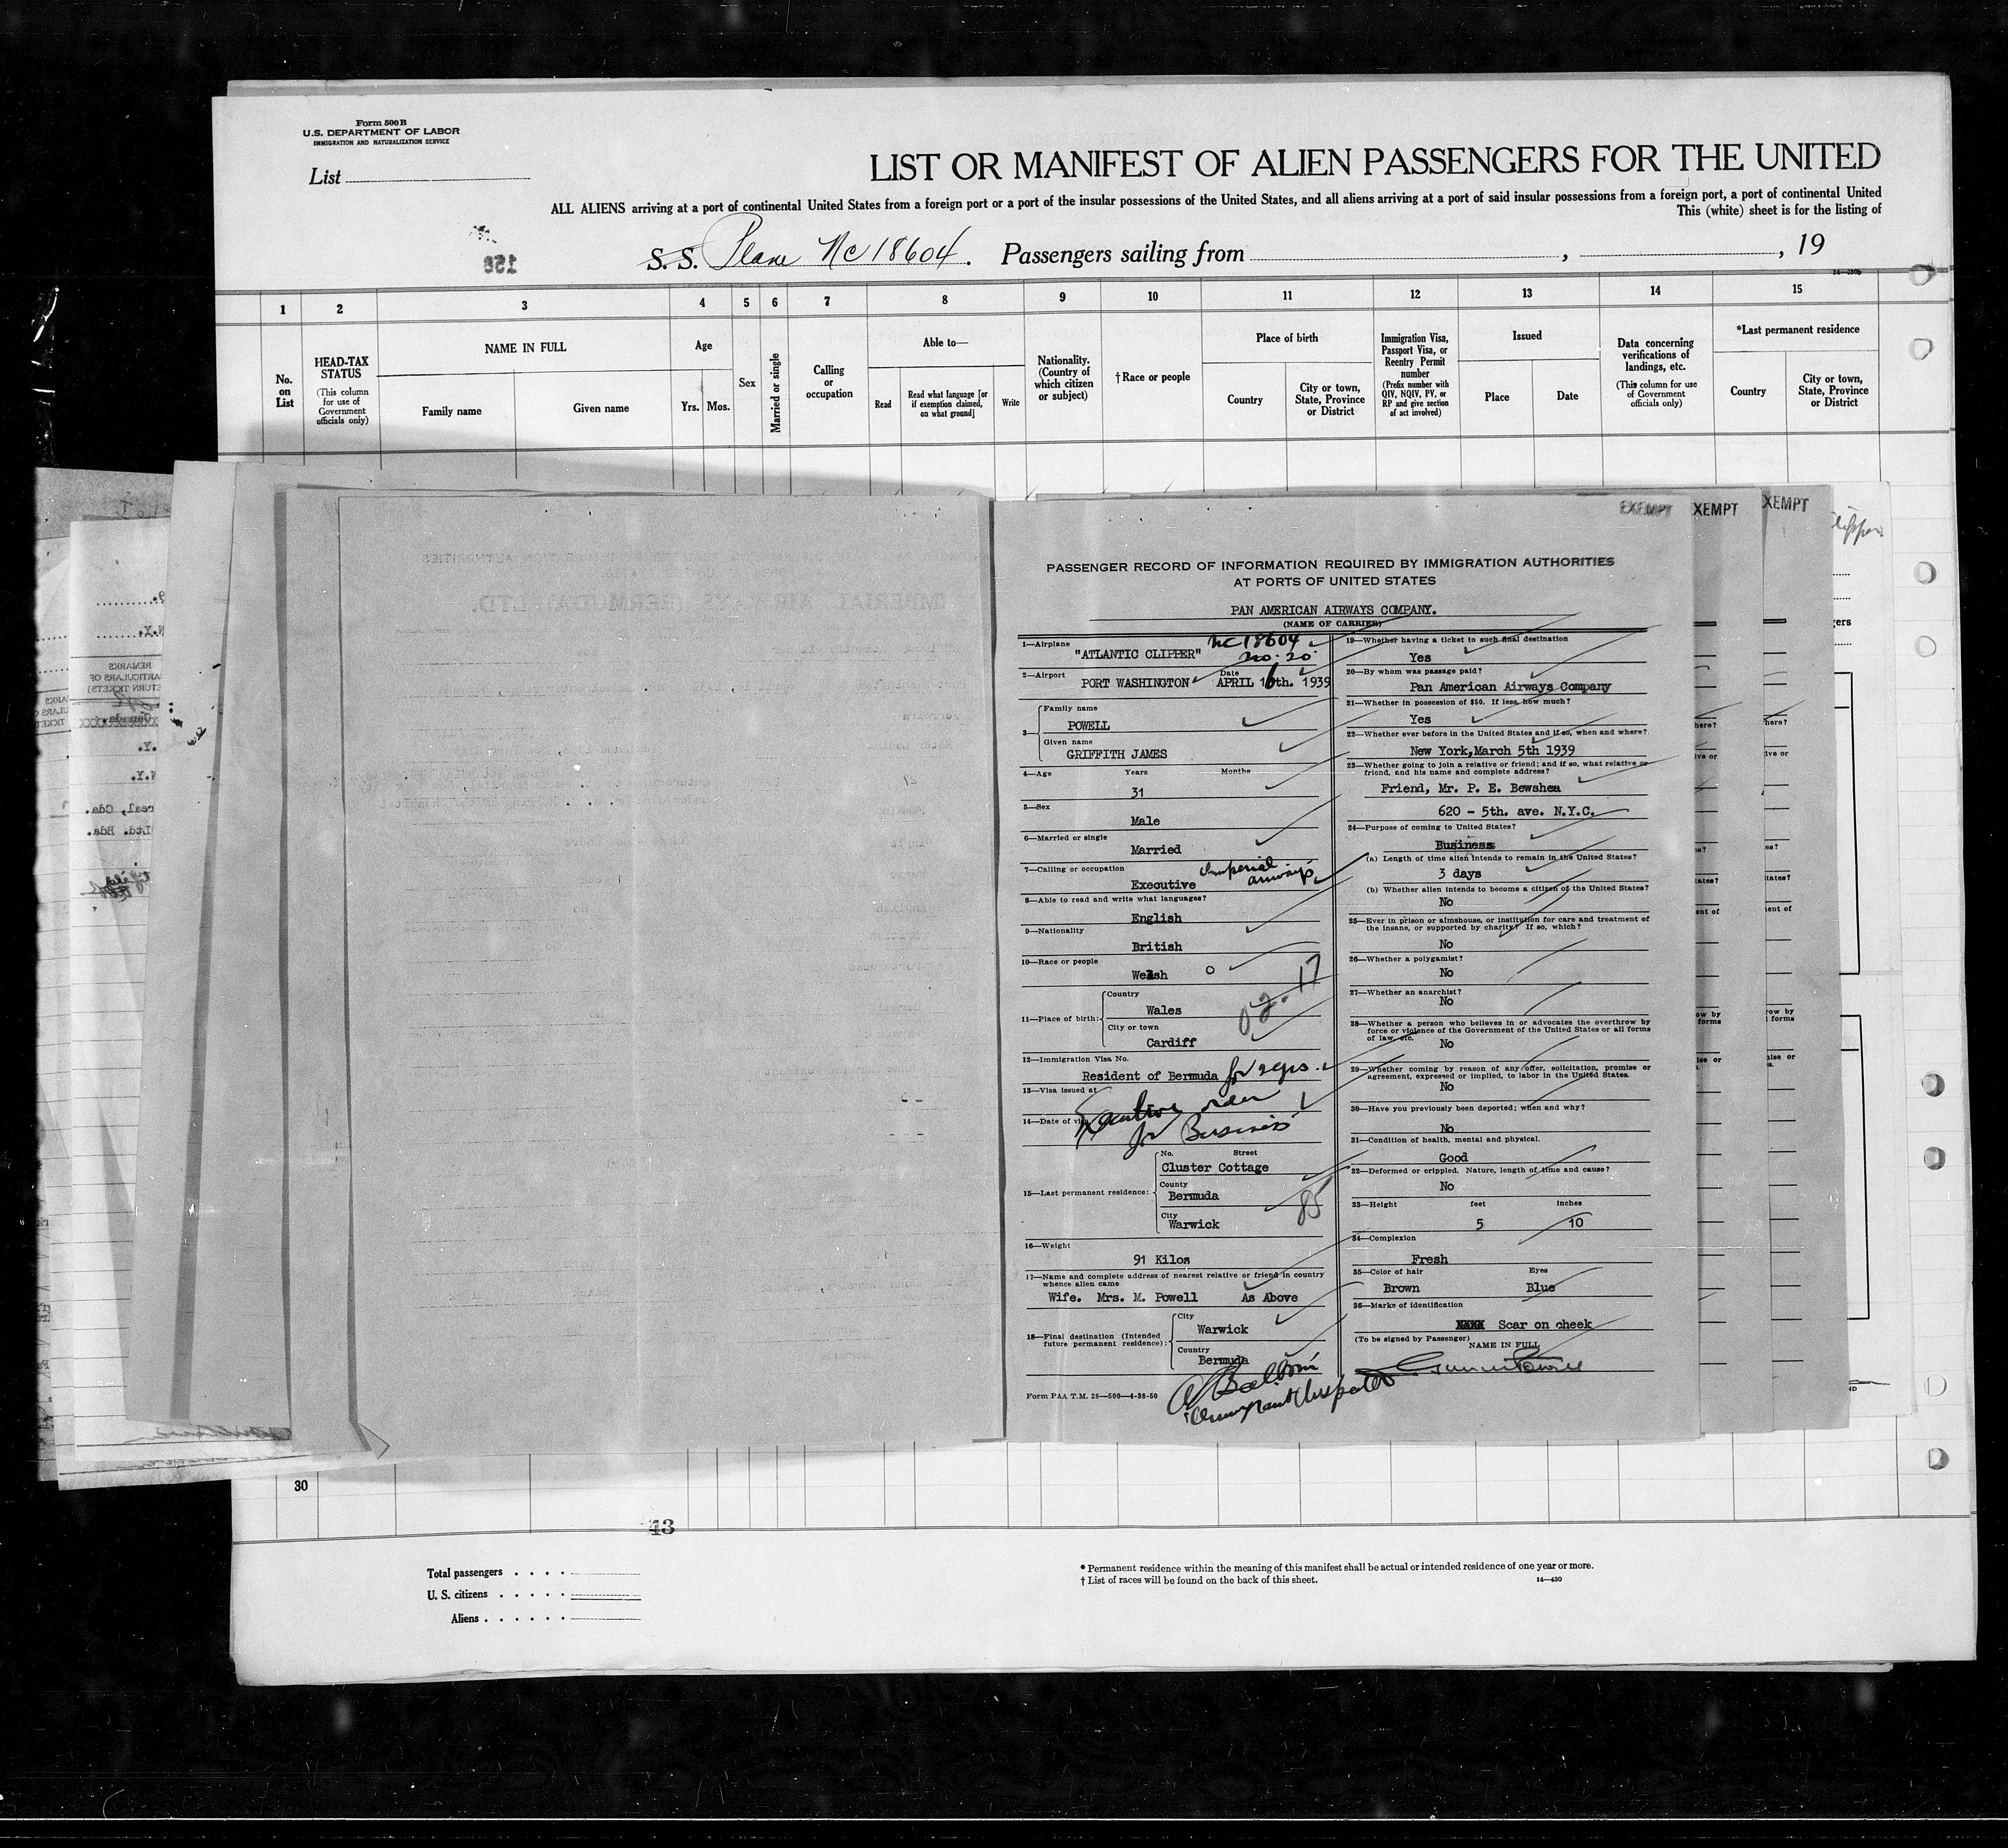 Form 500B
U.S. DEPARTMENT OF LABOR
IMMIGRATION AND NATURALIZATION SERVICE
List
LIST OR MANIFEST OF ALIEN PASSENGERS FOR THE UNITED
ALL ALIENS arriving at a port of continental United States from a foreign port or a port of the insular possessions of the United States, and all aliens arriving at a port of said insular possessions from a foreign port, a port of continental United
This (white) sheet is for the listing of
S. S. Plane NC 18604. Passengers sailing from , , 19
1 2 3 4 5 6 7 8 9 10 11 12 13 14 15
No. on List
HEAD-TAX STATUS
(This column for use of Government officials only)
NAME IN FULL
Family name
Given name
Age
Yrs. Mos.
Sex
Married or single
Calling or occupation
Able to—
Read
Read what language [or if exemption claimed, on what ground]
Write
Nationality. (Country of which citizen or subject)
†Race or people
Place of birth
Country
City or town, State, Province or District
Immigration Visa, Passport Visa, or Reentry Permit number
(Prefix number with QIV, NQIV, PV, or RP and give section of act involved)
Issued
Place
Date
Data concerning verifications of landings, etc.
(This column for use of Government officials only)
*Last permanent residence
Country
City or town, State, Province or District
EXEMPT XEMPT XEMPT
PASSENGER RECORD OF INFORMATION REQUIRED BY IMMIGRATION AUTHORITIES
AT PORTS OF UNITED STATES
PAN AMERICAN AIRWAYS COMPANY.
(NAME OF CARRIER)
1—Airplane
"ATLANTIC CLIPPER" NC18604
No. 20
2—Airport Date
PORT WASHINGTON APRIL 16th. 1939
3— Family name
POWELL
Given name
GRIFFITH JAMES
4—Age Years Months
31
5—Sex
Male
6—Married or single
Married
7—Calling or occupation
Executive Imperial airways
8—Able to read and write what languages?
English
9—Nationality
British
10—Race or people
Welsh
11—Place of birth: Country
Wales
City or town
Cardiff
12—Immigration Visa No.
Resident of Bermuda for 2 yrs.
13—Visa issued at
Executive order
14—Date of visa
for Business
15—Last permanent residence: No. Street
Cluster Cottage
County
Bermuda
85
City
Warwick
16—Weight
91 Kilos
17—Name and complete address of nearest relative or friend in country whence alien came
Wife. Mrs. M. Powell As Above
18—Final destination (Intended future permanent residence): City
Warwick
Country
Bermuda
Form PAA T.M. 28—500—4-38-50
19—Whether having a ticket to such final destination
Yes
20—By whom was passage paid?
Pan American Airways Company
21—Whether in possession of $50. If less, how much?
Yes
22—Whether ever before in the United States and if so, when and where?
New York,March 5th 1939
23—Whether going to join a relative or friend; and if so, what relative or friend, and his name and complete address?
Friend, Mr. P. E. Bewshea
620 - 5th. ave. N.Y.C.
24—Purpose of coming to United States?
Business
(a) Length of time alien intends to remain in the United States?
3 days
(b) Whether alien intends to become a citizen of the United States?
No
25—Ever in prison or almshouse, or institution for care and treatment of the insane, or supported by charity? If so, which?
No
26—Whether a polygamist?
No
27—Whether an anarchist?
No
28—Whether a person who believes in or advocates the overthrow by force or violence of the Government of the United States or all forms of law, etc.
No
29—Whether coming by reason of any offer, solicitation, promise or agreement, expressed or implied, to labor in the United States.
No
30—Have you previously been deported; when and why?
No
31—Condition of health, mental and physical.
Good
32—Deformed or crippled. Nature, length of time and cause?
No
33—Height feet inches
5 10
34—Complexion
Fresh
35—Color of hair Eyes
Brown Blue
36—Marks of identification
Scar on cheek
(To be signed by Passenger)
NAME IN FULL
30
43
Total passengers
U. S. citizens
Aliens
* Permanent residence within the meaning of this manifest shall be actual or intended residence of one year or more.
† List of races will be found on the back of this sheet.
14—430